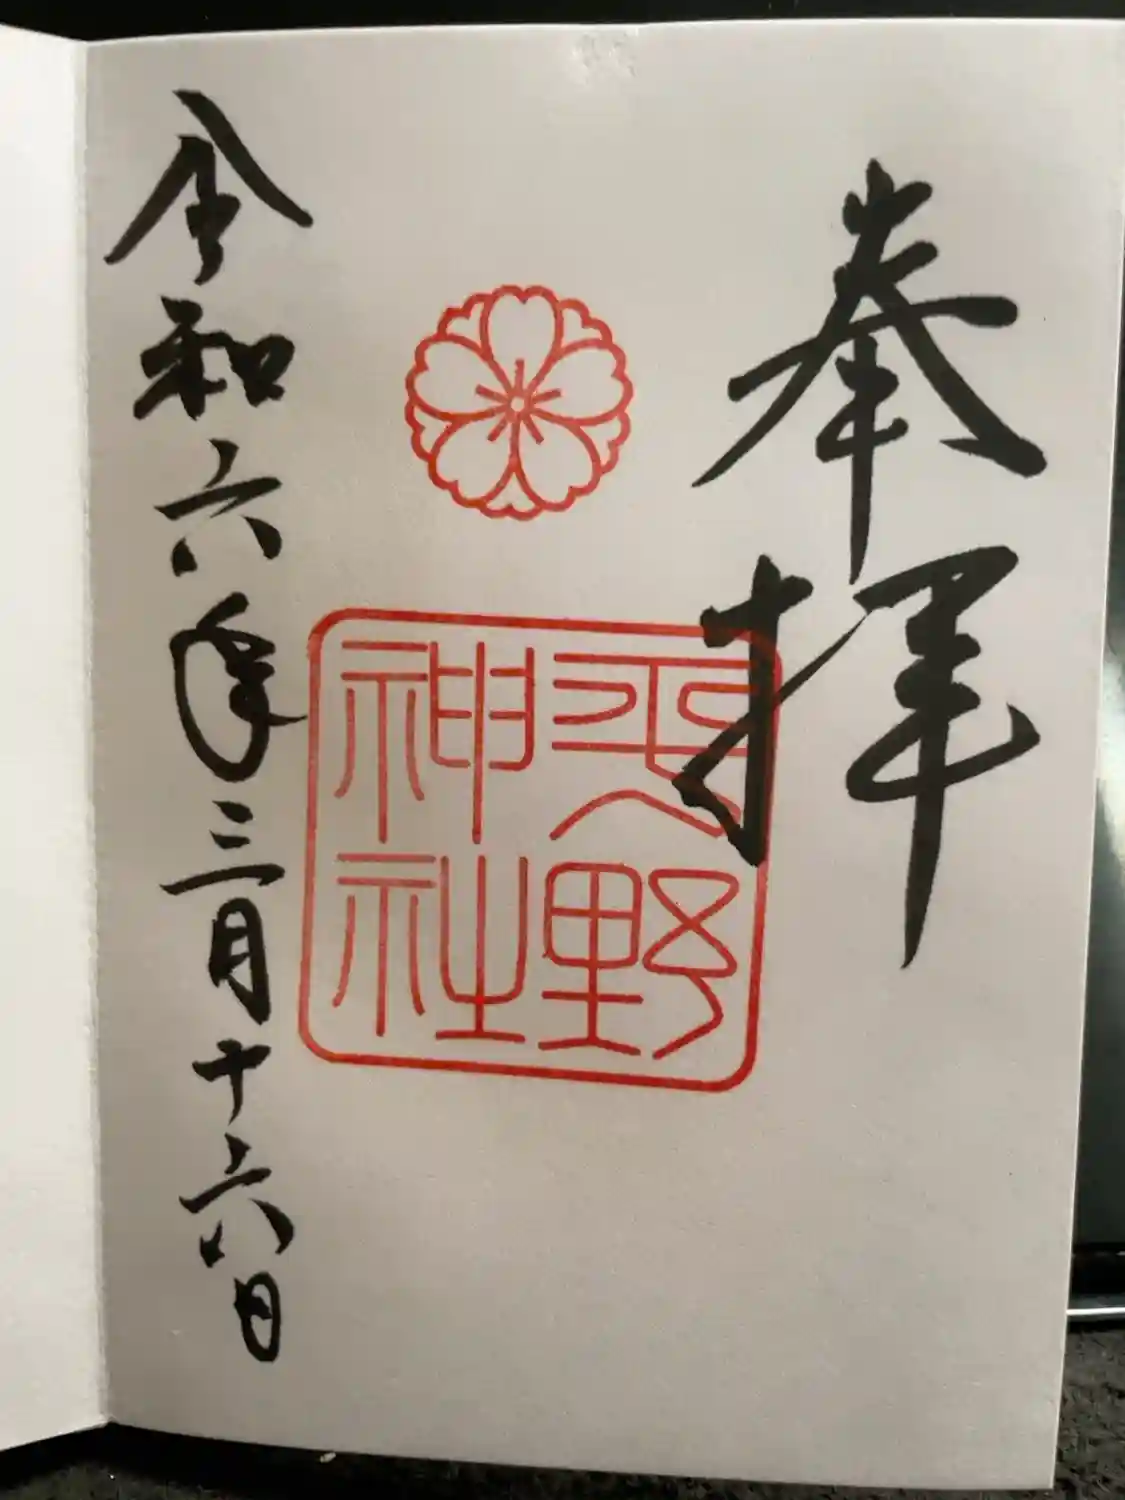 奉拝
平野
神社
令和六年三月十六日